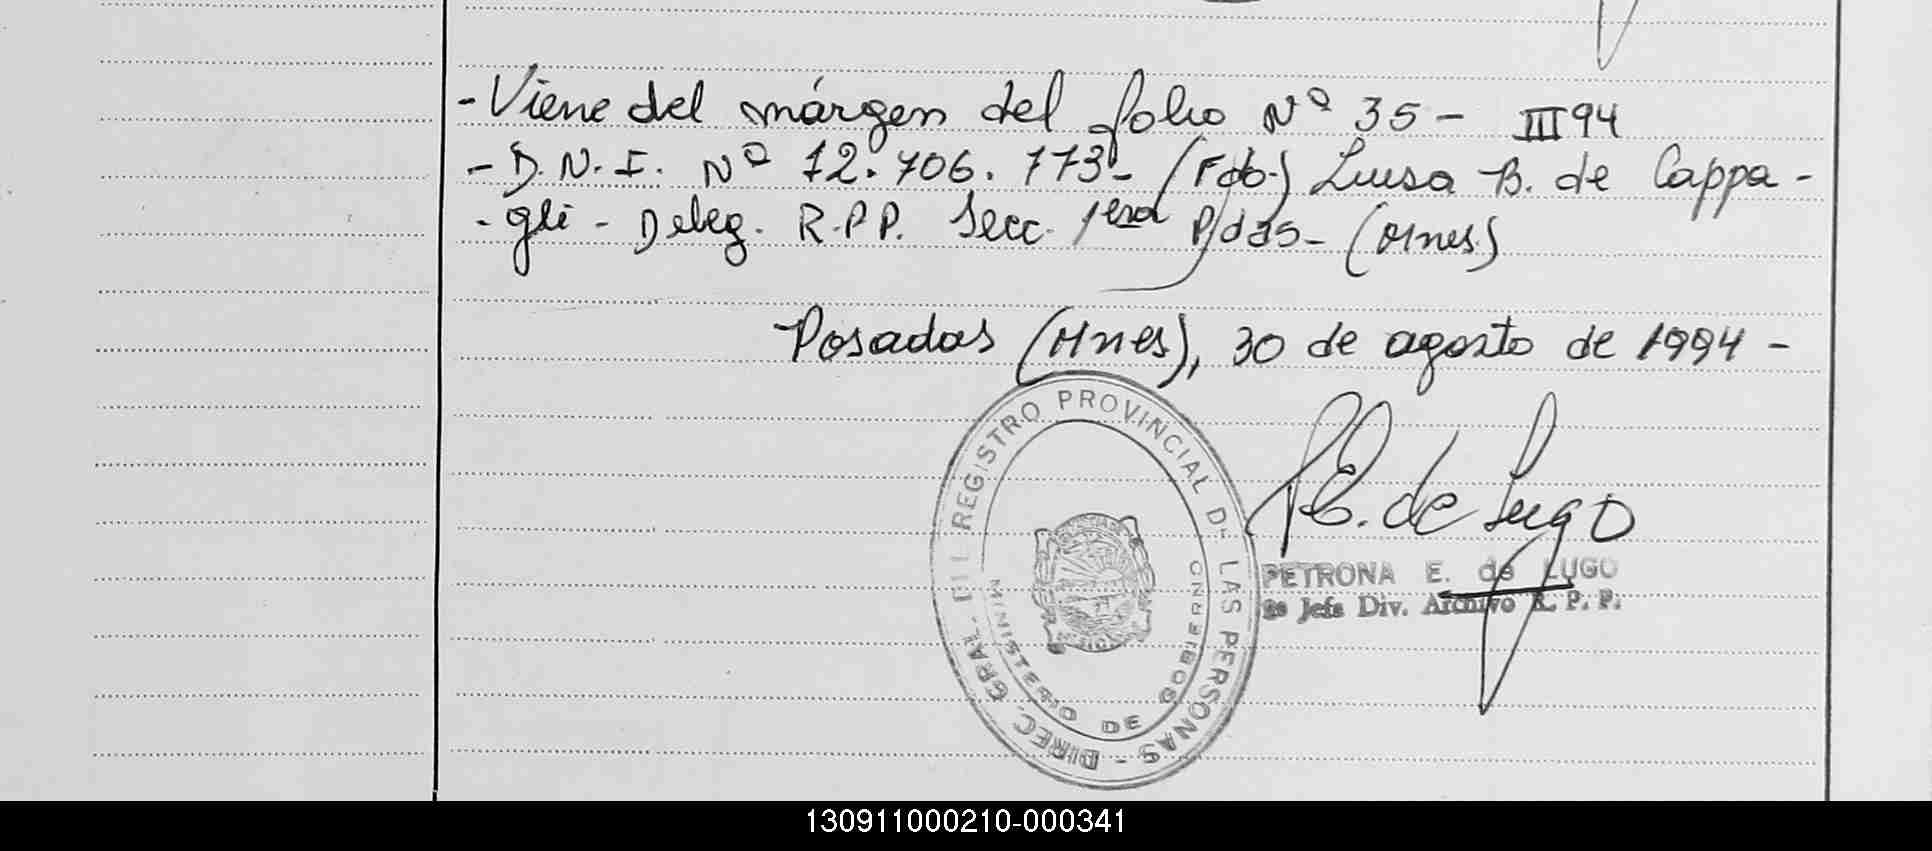 - Viene del márgen del folio Nº 35 - III 94
- D.N.I. Nº 12.706.773- (Fdo.) Luisa B. de Cappa -
- gli - Deleg. R.P.P. Secc. 1era P/das- (Mnes.)
Posadas (Mnes), 30 de agosto de 1994 -
DIREC. GRAL. DEL REGISTRO PROVINCIAL DE LAS PERSONAS -
MINISTERIO DE GOBIERNO
P.E. de Lugo
PETRONA E. de LUGO
Jefe Div. Archivo R. P. P.
130911000210-000341